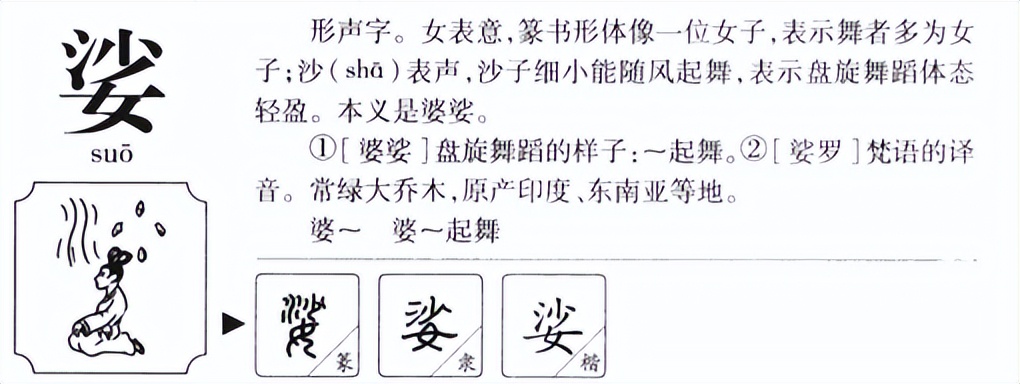 娑
suō
形声字。女表意,篆书形体像一位女子,表示舞者多为女
子;沙(shā)表声,沙子细小能随风起舞,表示盘旋舞蹈体态
轻盈。本义是婆娑。
①[婆娑]盘旋舞蹈的样子:～起舞。②[娑罗]梵语的译
音。常绿大乔木,原产印度、东南亚等地。
婆～ 婆～起舞
娑 篆 娑 隶 娑 楷